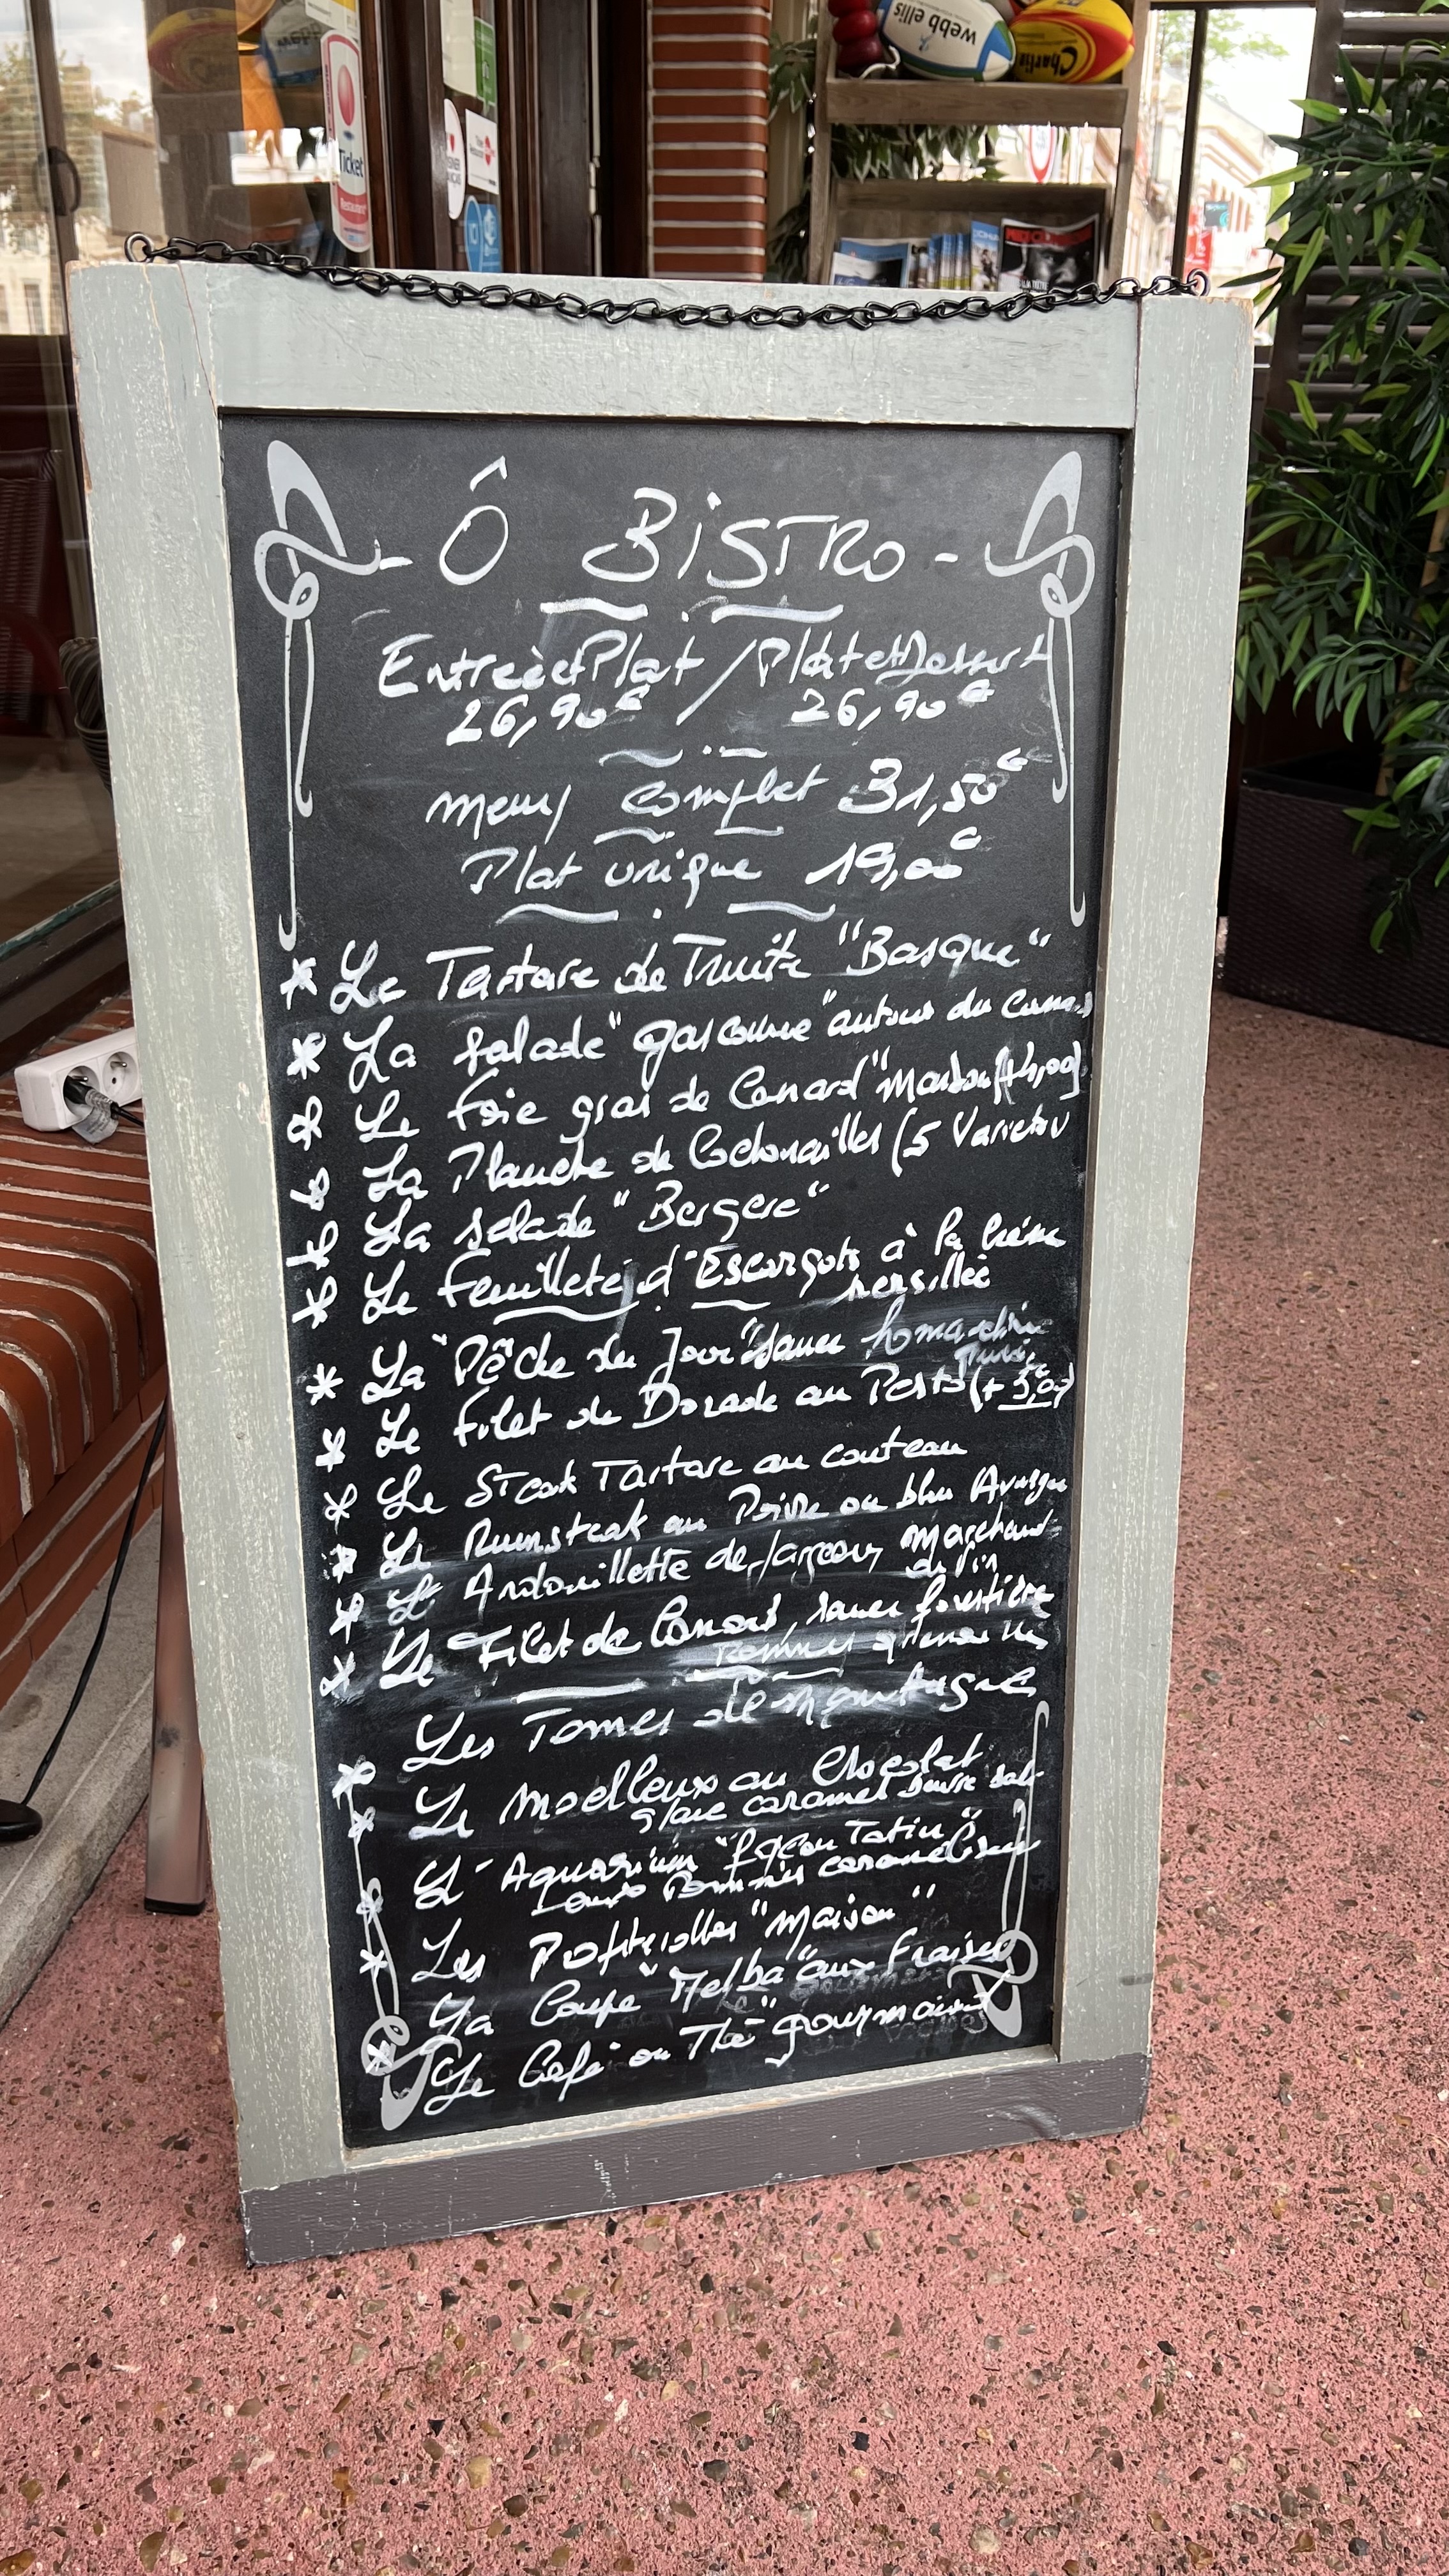 webb ellis
Charlie
Ticket
Restaurant
- Ô BiSTRo -
Entrée et Plat / Plat et Dessert
26,90€ / 26,90€
Menu complet 31,50€
Plat unique 19,00€
* Le Tartare de Truite "Basque"
* La salade "gasconne" autour du Canard
* Le foie gras de Canard "maison" (+4,00)
* La Planche de Cochonailles (5 Variétés)
* La salade "Bergere"
* Le Feuilleté d'Escargots à la crème
persillée
* La "Pêche du Jour" sauce homardine
* Le filet de Dorade au Pesto (+ 3,00)
* Le Steak Tartare au couteau
* Le Rumsteak au Poivre ou bleu Auvergne
* L'Andouillette de Jargeau, Marchand
de Vin
* Le Filet de Canard, sauce forestière
Pommes grenailles
Les Tomes de Montagnes
* Le Moelleux au Chocolat
glace caramel beurre salé
* L'Aquarium "façon Tatin"
aux Pommes caramélisées
* Les Profiterolles "maison"
* La Coupe "Melba" aux Fraises
* Le Café ou Thé "gourmand"